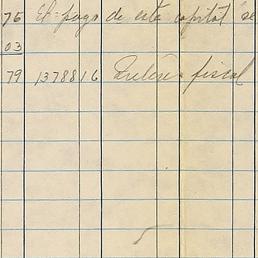 75 El pago de este capital se
03
79 1378816 Interés fiscal